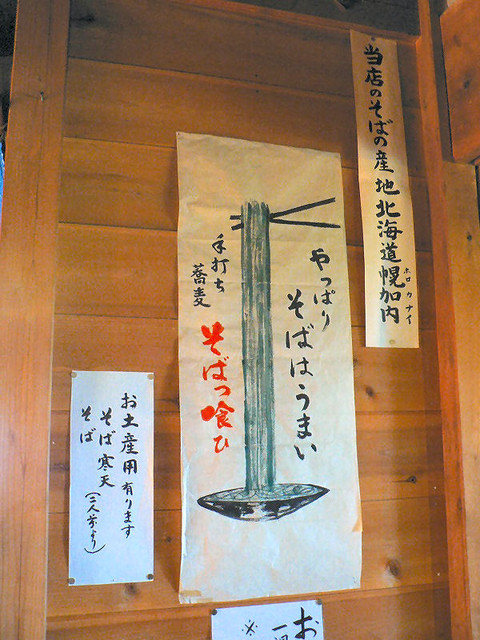 当店のそばの産地北海道幌加内
ホロカナイ
やっぱり
そばはうまい
手打ち
蕎麦
そばっ喰ひ
お土産用有ります
そば寒天
そば
(二人前より)
お
一
※